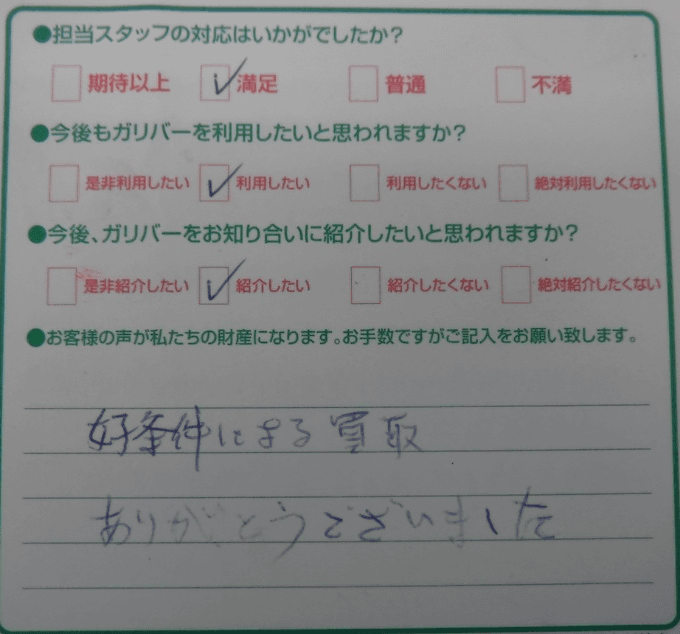 ●担当スタッフの対応はいかがでしたか？
期待以上 満足 普通 不満
●今後もガリバーを利用したいと思われますか？
是非利用したい 利用したい 利用したくない 絶対利用したくない
●今後、ガリバーをお知り合いに紹介したいと思われますか？
是非紹介したい 紹介したい 紹介したくない 絶対紹介したくない
●お客様の声が私たちの財産になります。お手数ですがご記入をお願い致します。
好条件による買取
ありがとうございました